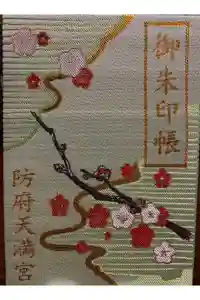 御朱印帳
防府天満宮